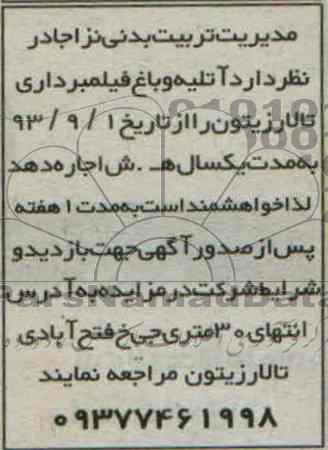 مدیریت تربیت بدنی نزاجا در
نظر دارد آتلیه و باغ فیلمبرداری
تالار زیتون را از تاریخ ۹۳/۹/۱
به مدت یکسال هـ .ش اجاره دهد
لذا خواهشمند است به مدت ۱ هفته
پس از صدور آگهی جهت بازدید و
شرایط شرکت در مزایده به آدرس
انتهای ۳۰ متری جی خ فتح آبادی
تالار زیتون مراجعه نمایند
۰۹۳۷۷۴۶۱۹۹۸